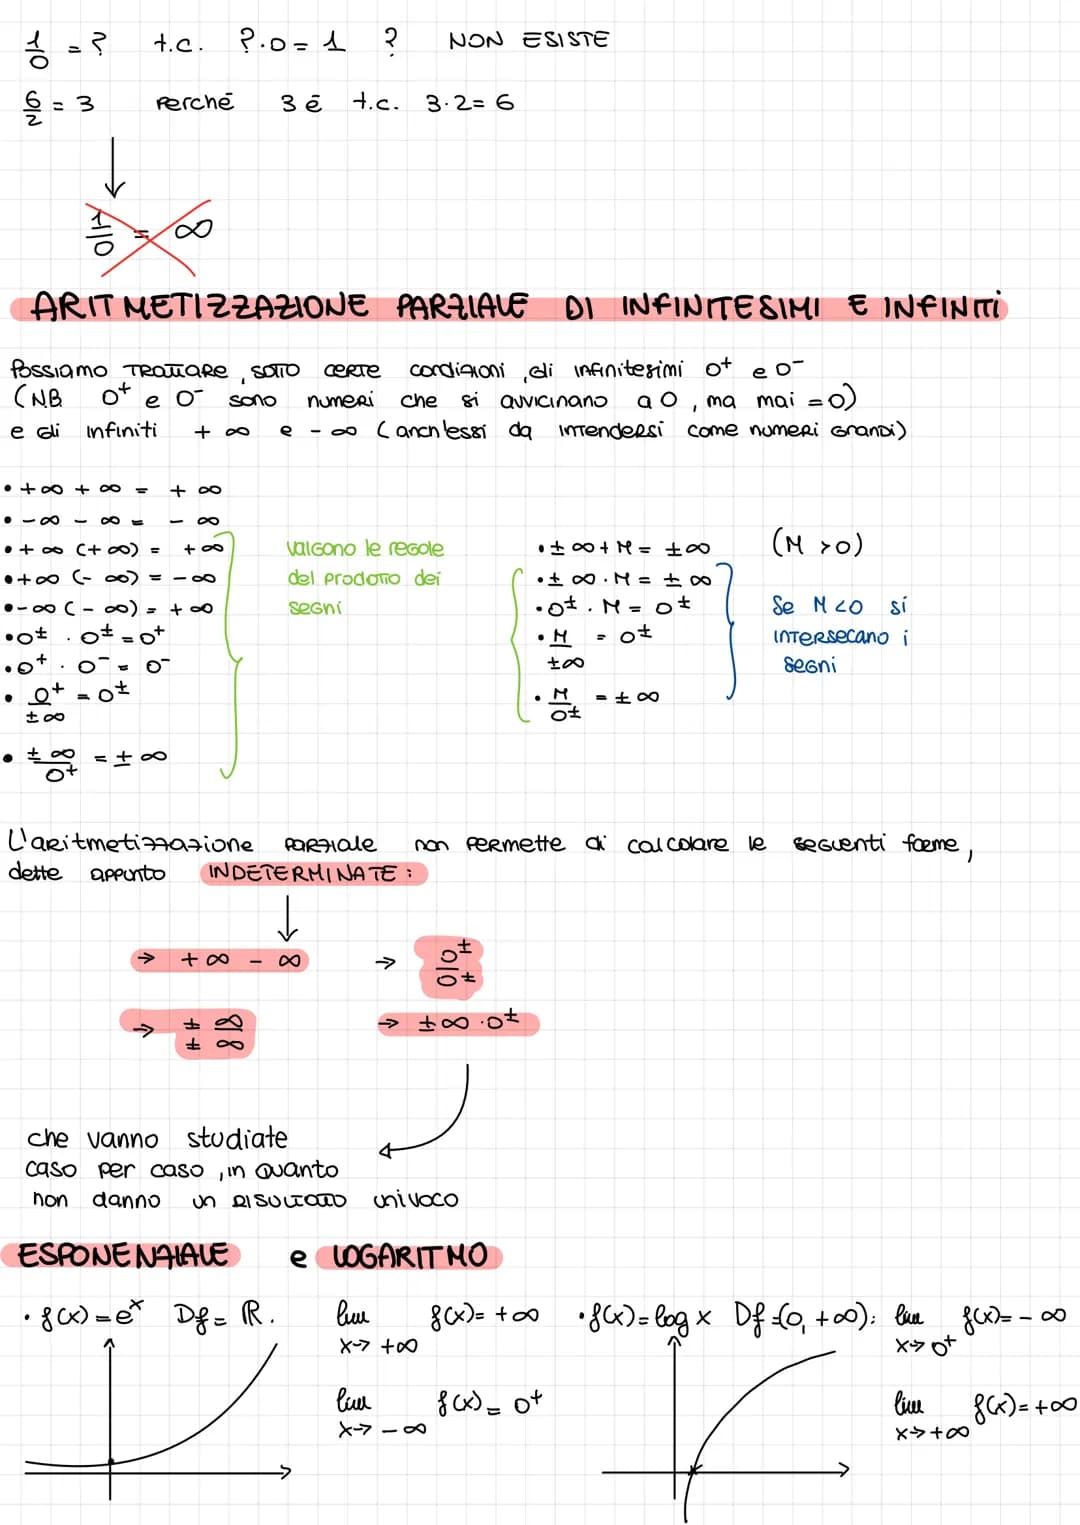 1/0 = ? t.c. ?·0 = 1 ? NON ESISTE
6/2 = 3 Perchē 3 ē t.c. 3·2 = 6
1/0 = ∞
ARITMETIZZAZIONE PARZIALE DI INFINITESIMI E INFINITI
Possiamo TRATTARE, SOTTO CERTE condizioni, gli infinitesimi 0⁺ e 0⁻
(NB 0⁺ e 0⁻ sono numeri che si avvicinano a 0, ma mai = 0)
e gli infiniti + ∞ e - ∞ (anch'essi da intendersi come numeri GRANDI)
• +∞ + ∞ = + ∞
• -∞ - ∞ = - ∞
• +∞ (+∞) = +∞
• +∞ (- ∞) = - ∞
• -∞ (- ∞) = + ∞
• 0± · 0± = 0⁺
• 0⁺ · 0⁻ = 0⁻
• 0⁺/±∞ = 0±
• ±∞/0⁺ = ±∞
valgono le regole
del prodotto dei
segni
• ±∞ + M = ±∞
• ±∞ · M = ±∞
• 0± · M = 0±
• M/±∞ = 0±
• M/0± = ±∞
(M >0)
Se M<0 si
intersecano i
segni
L'aritmetizzazione parziale non permette di calcolare le seguenti forme,
dette appunto INDETERMINATE:
→ +∞ - ∞ → 0±/0±
→ ±∞/±∞ → ±∞ · 0±
che vanno studiate
caso per caso, in quanto
non danno un RISULTATO univoco
ESPONENZIALE e LOGARITMO
• f(x) = eˣ Df = ℝ. lim x→ +∞ f(x) = +∞ • f(x) = log x Df = (0, +∞): lim x→ 0⁺ f(x) = - ∞
lim x→ -∞ f(x) = 0⁺ lim x→ +∞ f(x) = +∞